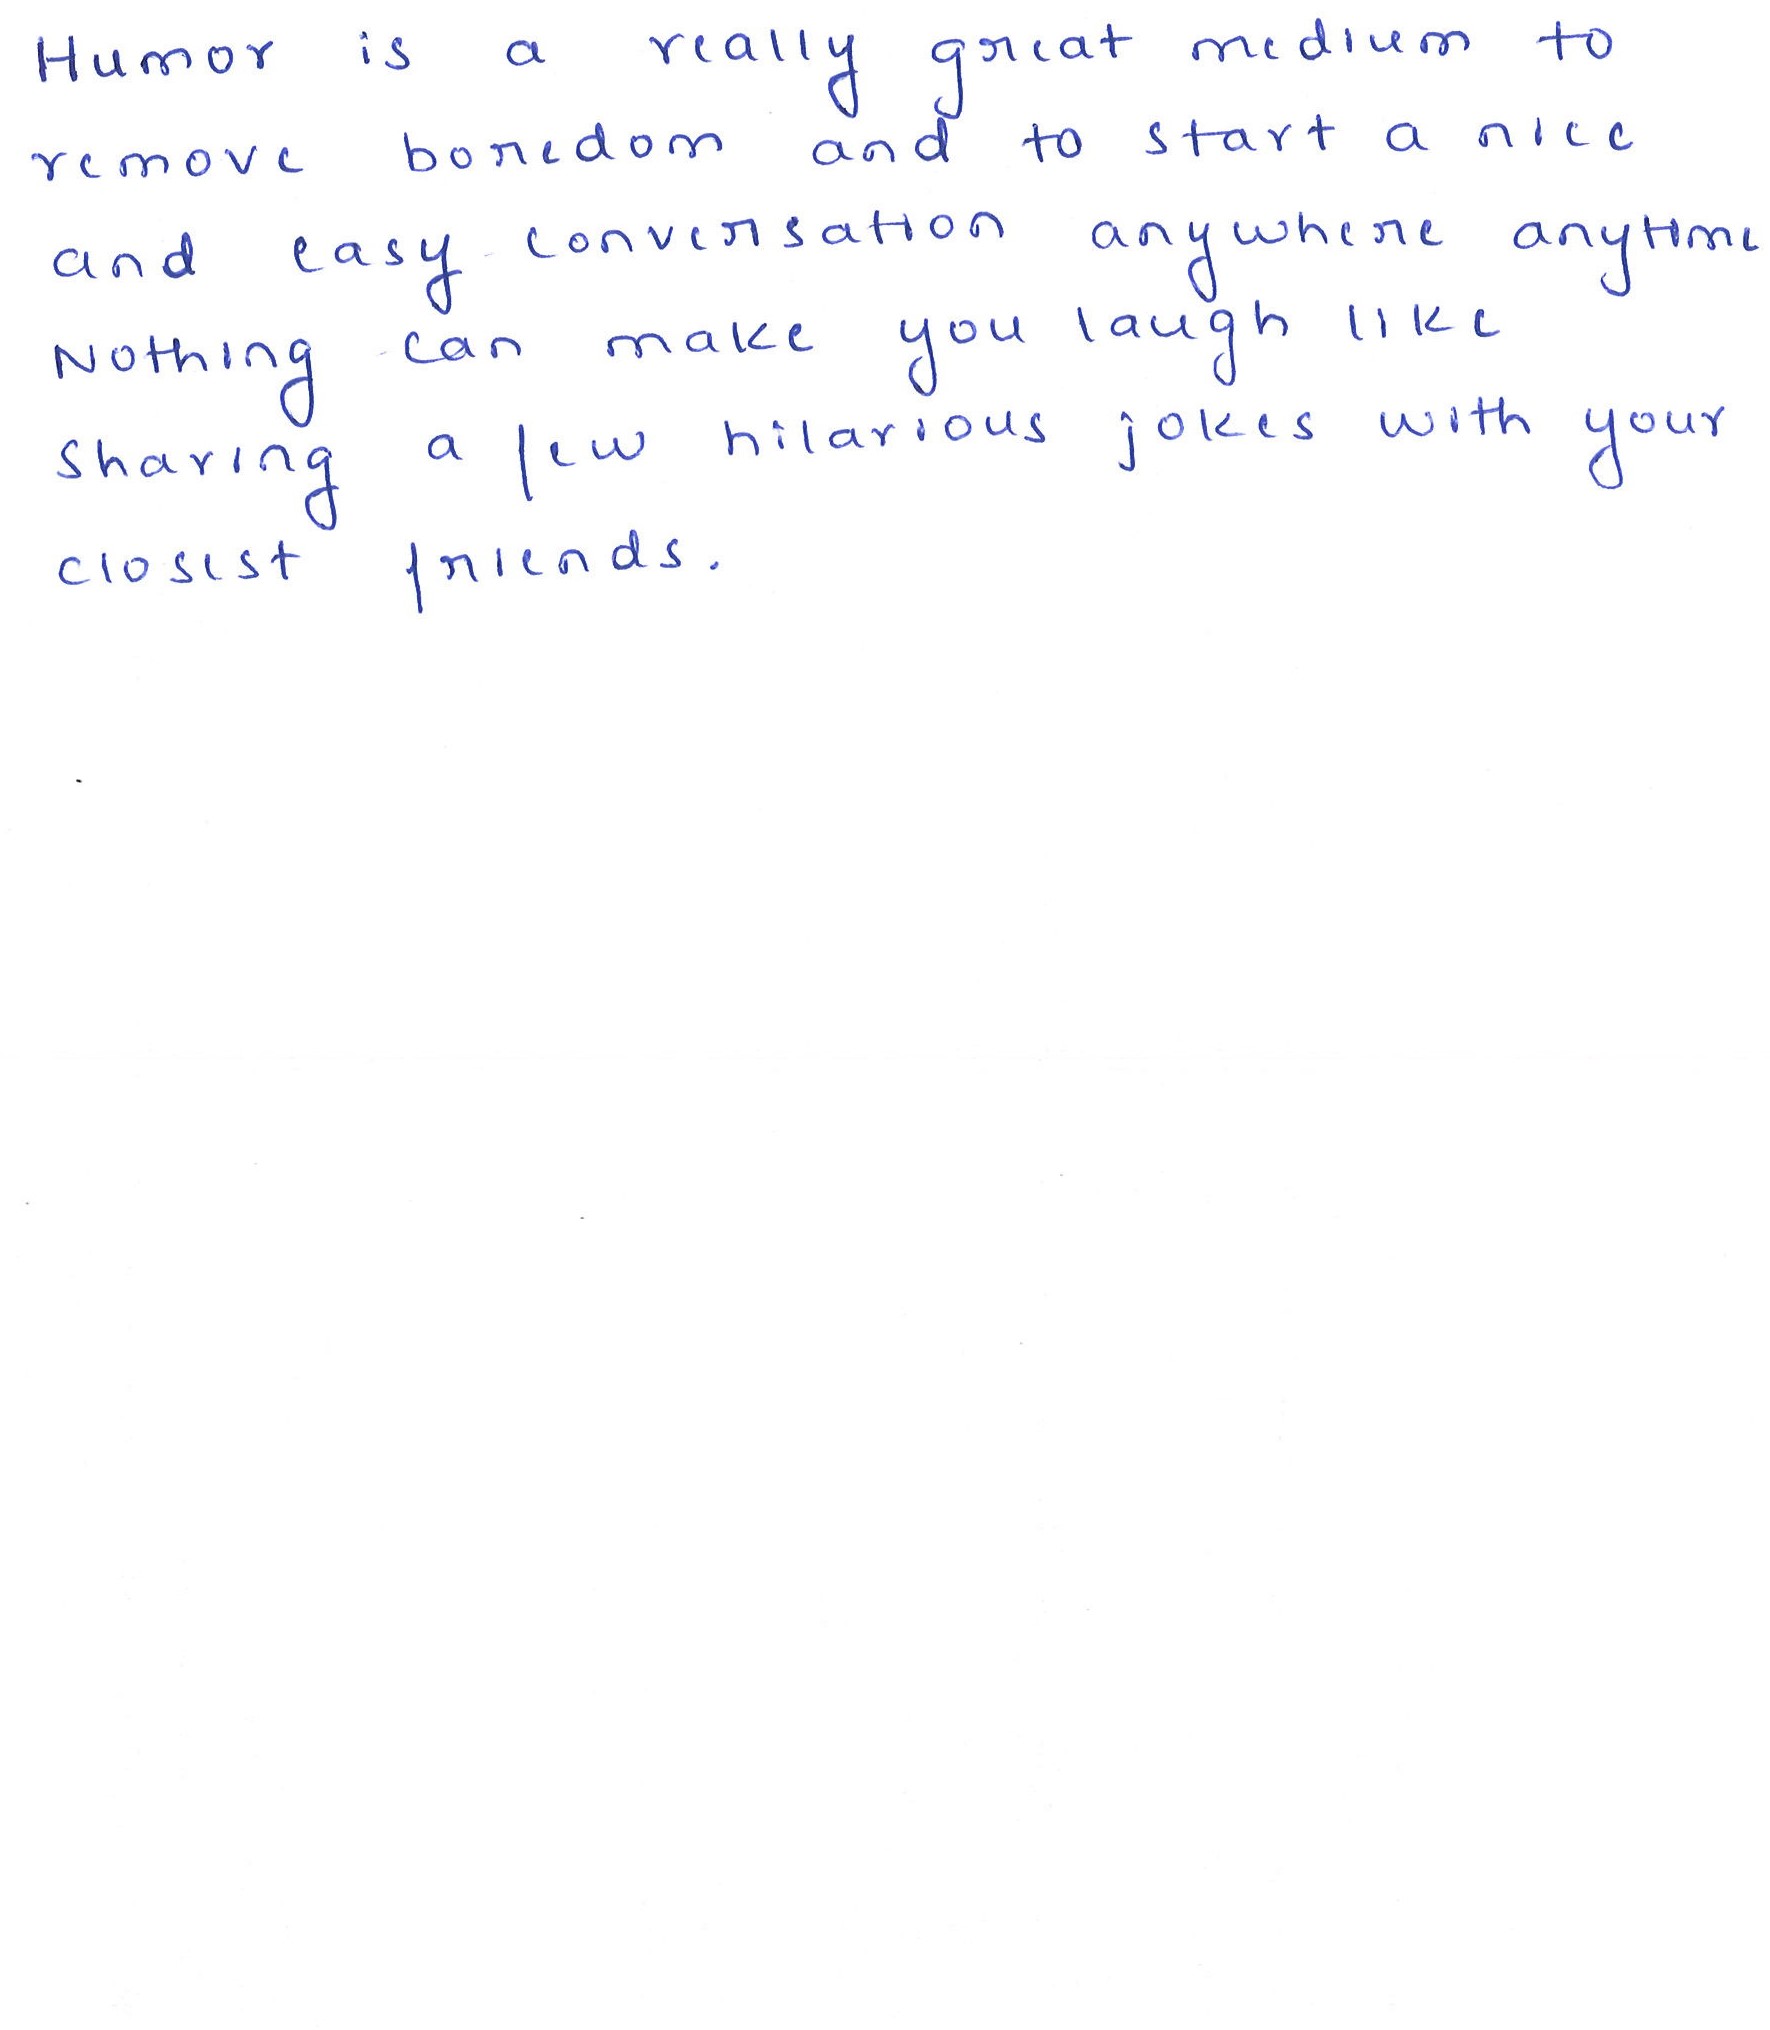 Humor is a really great medium to
remove boredom and to start a nice
and easy conversation anywhere anytime
Nothing can make you laugh like
sharing a few hilarious jokes with your
closest friends.